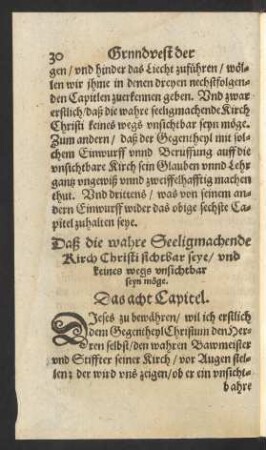 30 Grundvest der
gen / vnd hinder das Liecht zuführen / wöl-
len wir jhme in denen dreyen nechstfolgen-
den Capitlen zuerkennen geben. Vnd zwar
erstlich / daß die wahre seeligmachende Kirch
Christi keines wegs vnsichtbar seyn möge.
Zum andern / daß der Gegentheyl mit sol-
chem Einwurff vnnd Beruffung auff die
vnsichtbare Kirch sein Glauben vnnd Lehr
gantz vngewiß vnnd zweiffelhafftig machen
thut. Vnd drittens / was von seinem an-
dern Einwurff wider das obige sechste Ca-
pitel zuhalten seye.
Daß die wahre Seeligmachende
Kirch Christi sichtbar seye / vnd
keines wegs vnsichtbar
seyn möge.
Das acht Capitel.
DJeses zu bewähren / wil ich erstlich
dem Gegentheyl Christum den Her-
ren selbst / den wahren Bawmeister
vnd Stiffter seiner Kirch / vor Augen stel-
len; der wird vns zeigen / ob er ein vnsicht-
bahre